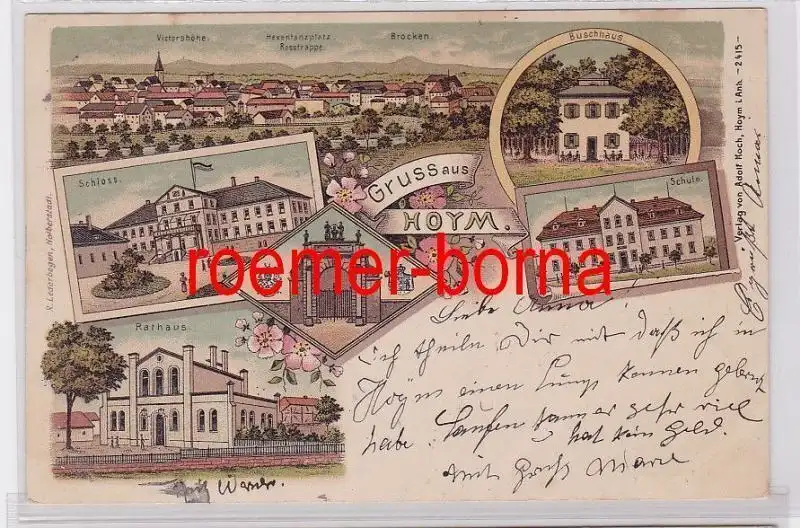 Victorshöhe.
Hexentanzplatz.
Rosstrappe.
Brocken.
Buschhaus.
Schloss.
Gruss aus
HOYM.
Schule.
roemer-borna
Rathaus.
R. Lederbogen, Halberstadt.
Verlag von Adolf Koch, Hoym i. Anh. -2415-
Liebe Anna!
Ich theile Dir mit daß ich in
Hoym einen
habe. Laufen kann er sehr viel
hat kein Geld.
Mit Gruß